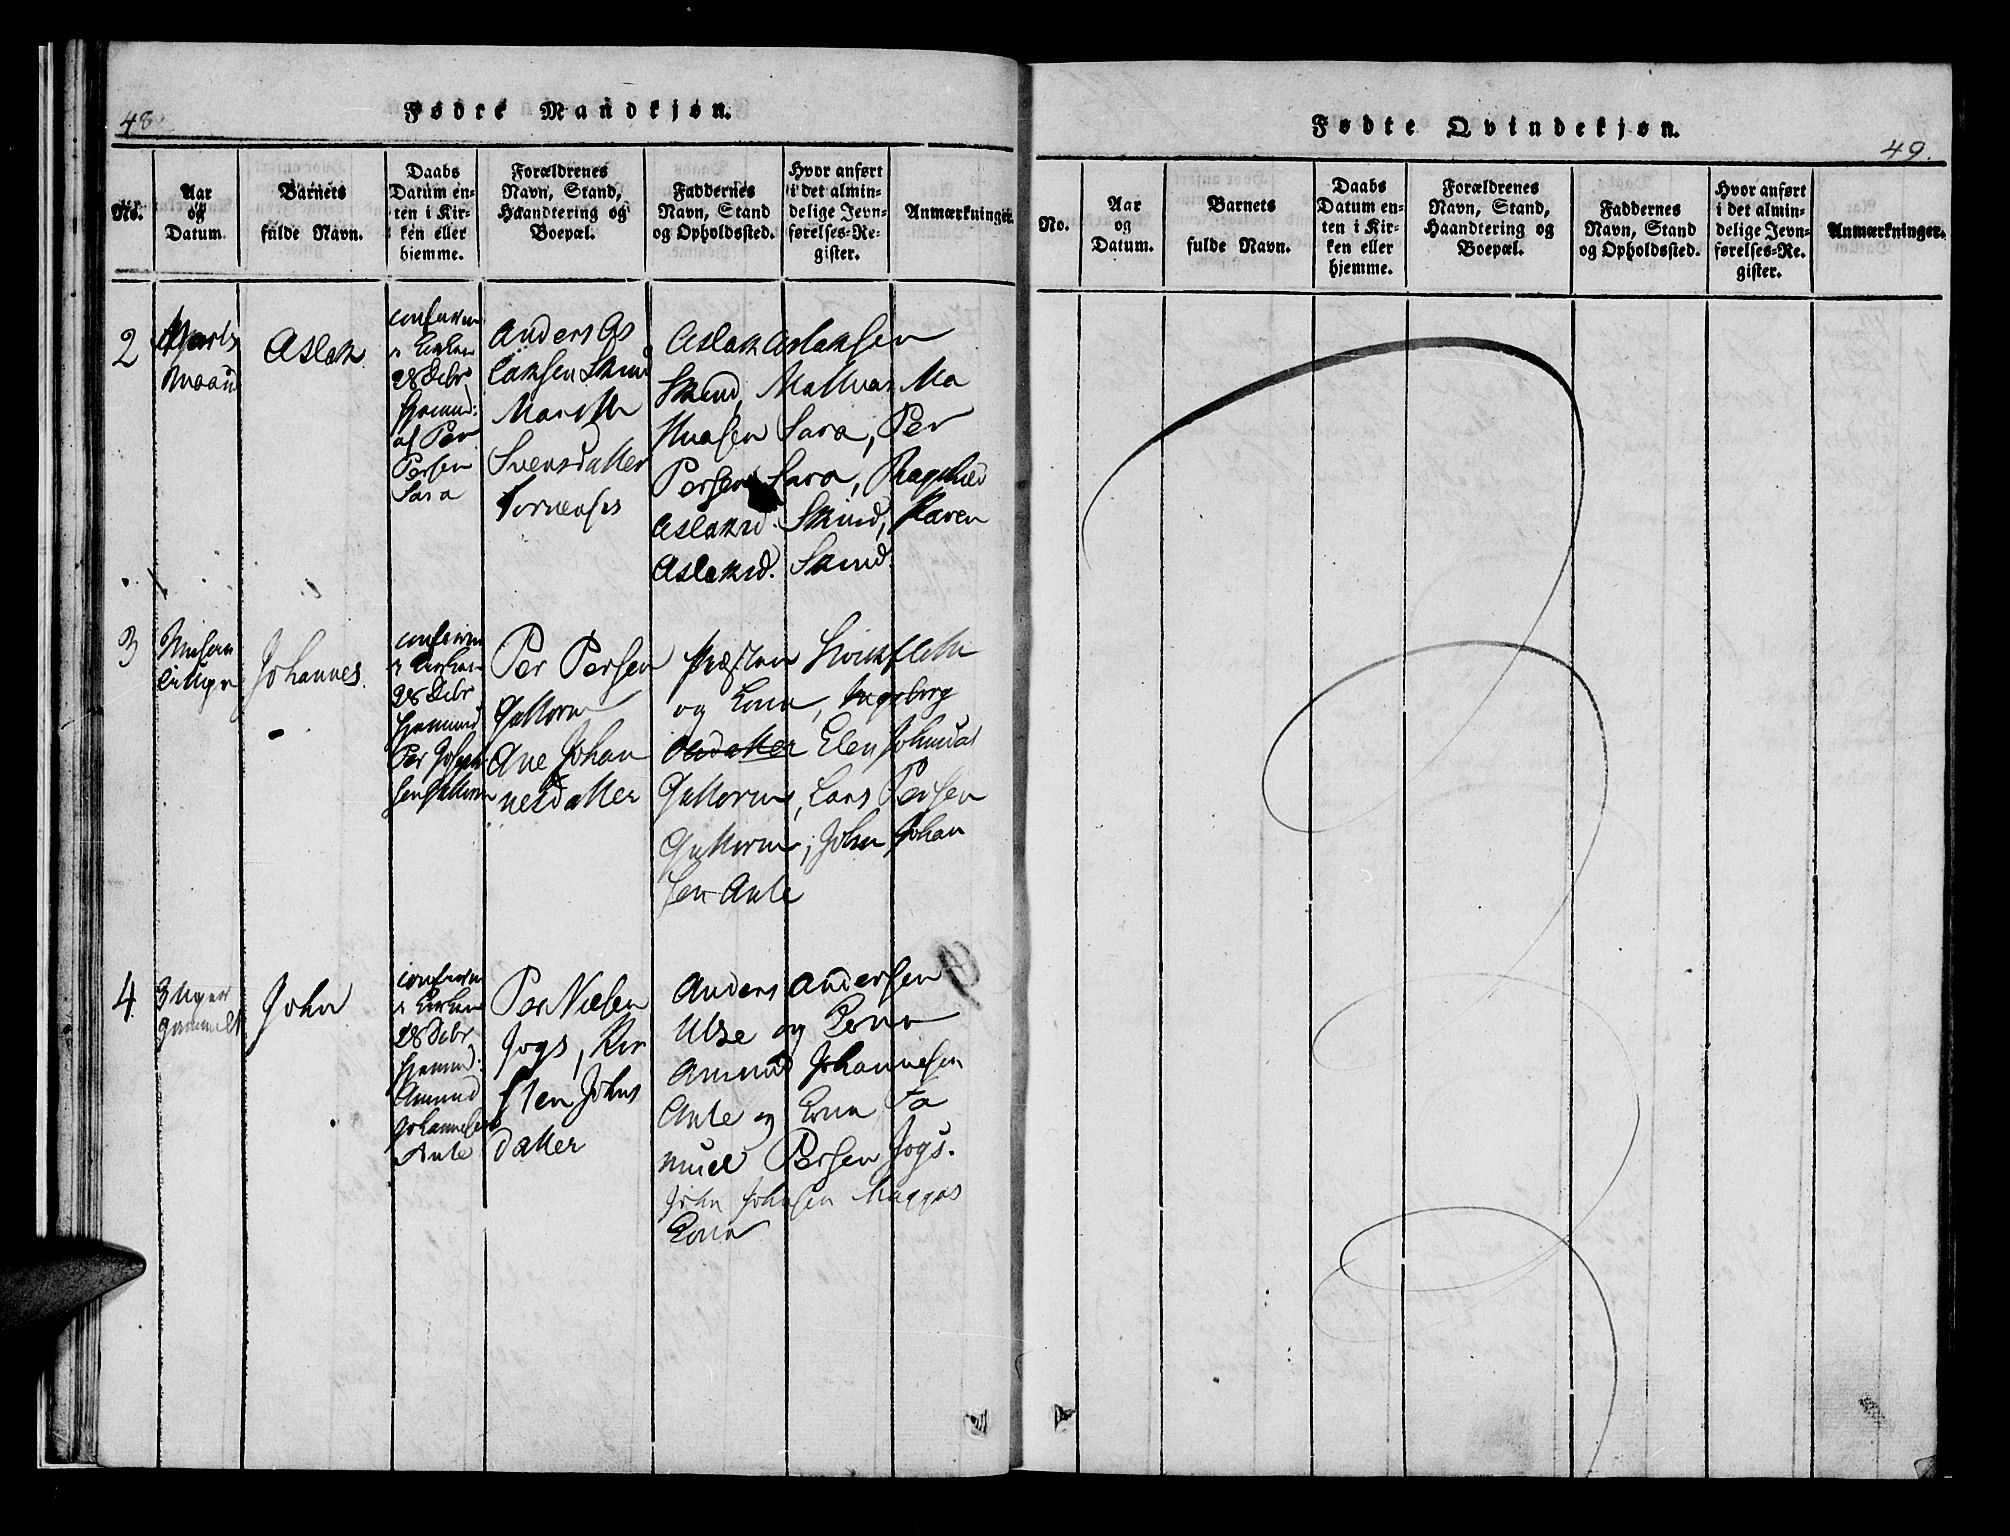 48
Fødte Mandkjøn.
No.
Aar
og
Datum.
Barnets
fulde Navn.
Daabs
Datum en-
ten i Kir-
ken eller
hjemme.
Forældrenes
Navn, Stand,
Haandtering og
Boepæl.
Faddernes
Navn, Stand
og Opholdssted.
Hvor anført
i det almin-
delige Jevn-
førelses-Re-
gister.
Anmærkninger.
2
Aslak
28 Debr
af Per
Persen
Sara
Anders As
laksen
Marethe
Svensdatter
Aslak Aslaksen
Mathias Ma
thiasen Sara, Per
Persen Sara, Ragnhild
Aslaksd. Karen
Aslaksd.
3
Johannes
28 Debr
Per Joseph
sen
Per Persen
Ane Johan
nesdatter
Præsten Stockfleth
og Kona, Ingeborg
Olsdatter Elen Johnsdat
Lars Persen
John Johan
sen Ante
4
3 Uger
gammelt
John
28 Debr
Amund
Johannesen
Ante
Per Nilsen
Jogs, Kir
sten Johns
datter
Anders Andersen
Utse og Kona
Amund Johannesen
Ante og Kona Sa
muel Persen Jogs.
John Johnsen Maggas
Kona
Fødte Qvindekjøn.
49.
No.
Aar
og
Datum.
Barnets
fulde Navn.
Daabs
Datum en-
ten i Kir-
ken eller
hjemme.
Forældrenes
Navn, Stand,
Haandtering og
Boepæl.
Faddernes
Navn, Stand
og Opholdssted.
Hvor anført
i det almin-
delige Jevn-
førelses-Re-
gister.
Anmærkninger.